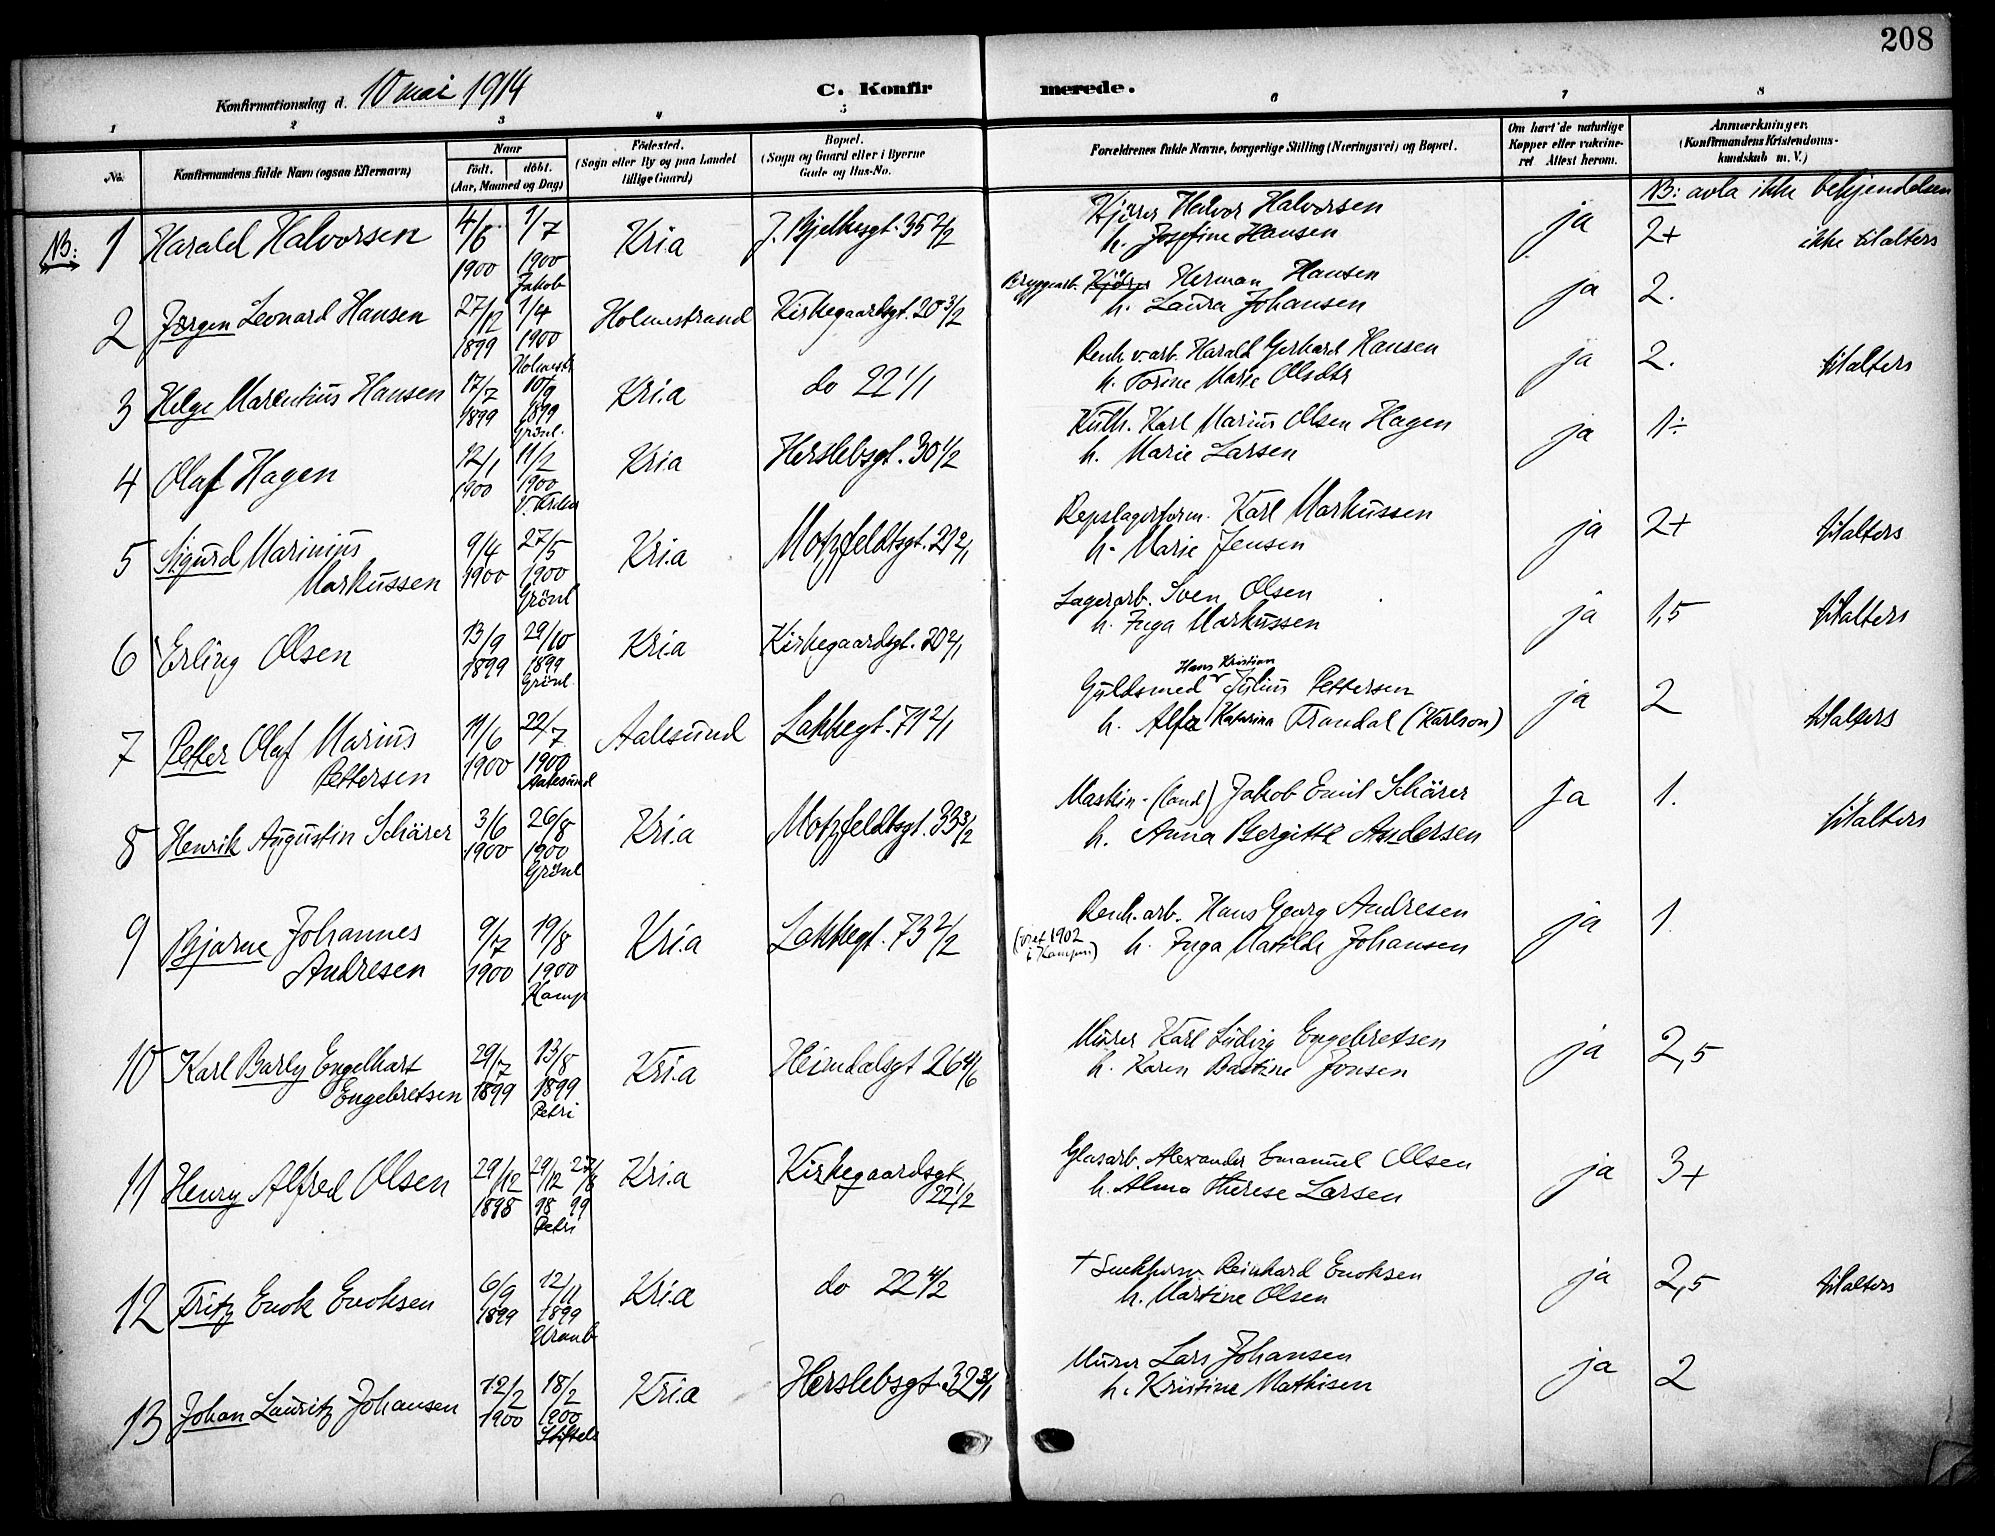 208
Konfirmationsdag d. 10 mai 1914
C. Konfirmerede.
1 2 3 4 5 6 7 8
No.
Konfirmandens fulde Navn (ogsaa Efternavn)
Naar
Födt. döbt.
(Aar, Maaned og Dag)
Födested.
(Sogn eller By og paa Landet
tillige Gaard)
Bopæl.
(Sogn og Gaard eller i Byerne
Gade og Hus-No.
Forældrenes fulde Navne, borgerlige Stilling (Næringsvei) og Bopæl.
Om havt de naturlige
Kopper eller vakcine-
ret Attest herom.
Anmærkninger.
(Konfirmandens Kristendoms-
kundskab m. V.)
NB: avla ikke bekjendelsen
NB: 1 Harald Halvorsen 4/6 1900 1/7 1900 Jakob Kria J. Bjelkesgt. 35 2/2 Kjörer Halvor Halvorsen ja 2+ ikke tilalters
h. Josefine Hansen
2 Jörgen Leonard Hansen 27/12 1899 1/4 1900 Holmestr Holmestrand Kirkegaardsgt. 20 3/2 Bryggearb. Kjörer Herman Hansen ja 2.
h. Laura Johansen
3 Helge Marentius Hansen 17/7 1899 10/9 1899 Grönl. Kria do 22 1/1 Renh. v. arb. Harald Gerhard Hansen ja 2. tilalters
h. Torine Marie Olsdtr
4 Olaf Hagen 12/1 1900 11/2 1900 Kria Herslebsgt. 30 1/2 Kulh. Karl Marius Olsen Hagen ja 1÷
h. Marie Larsen
5 Sigurd Marinius
Markussen 9/4 1900 27/5 1900 Grönl Kria Motzfeldtsgt. 21 2/1 Repslagerform. Karl Markussen ja 2+ tilalters
h. Marie Jensen
6 Erling Olsen 13/9 1899 29/10 1899 Grönl Kria Kirkegaardsgt. 20 2/1 Lagerarb. Sven Olsen ja 1,5 tilalters
h. Inga Markussen
7 Petter Olaf Marius
Pettersen 11/6 1900 22/7 1900 Aalesund Aalesund Lakkegt. 71 2/1 Guldsmed Hans Kristian Julius Pettersen ja 2 tilalters
h. Alfa Katarina Trandal (Karlson)
8 Henrik Augustin Schärer 3/6 1900 26/8 1900 Grönl Kria Motzfeldtsgt. 33 3/2 Maskin-(land) Jakob Emil Schärer ja 1. tilalters
h. Anna Bergitte Andersen
9 Bjarne Johannes
Andresen 9/7 1900 19/8 1900 Kamp Kria Lakkegt. 73 2/2 Renh. arb. Hans Georg Andresen ja 1.
(viet 1902
i Kampen) h. Inga Matilde Johansen
10 Karl Barly Engelhart
Engebretsen 29/7 1899 13/8 1899 Petri Kria Heimdalsgt 26 4/6 Murer Karl Ludvig Engebretsen ja 2,5
h. Karen Bastine Jonsen
11 Henry Alfred Olsen 29/12 1898 29/12 98 27/8 99 Petri Kria Kirkegaardsgt.
22 1/2 Glasarb. Alexander Emanuel Olsen ja 3+
h. Alma Therese Larsen
12 Fritz Enok Enoksen 6/9 1899 12/11 1899 Uranb Kria do 22 4/2 † Reinhard Enoksen ja 2,5 tilalters
h. Martine Olsen
13 Johan Lauritz Johansen 12/2 1900 18/2 1900 Stiftels Kria Herslebsgt. 32 3/1 Murer Lars Johansen ja 2
h. Kristine Mathisen